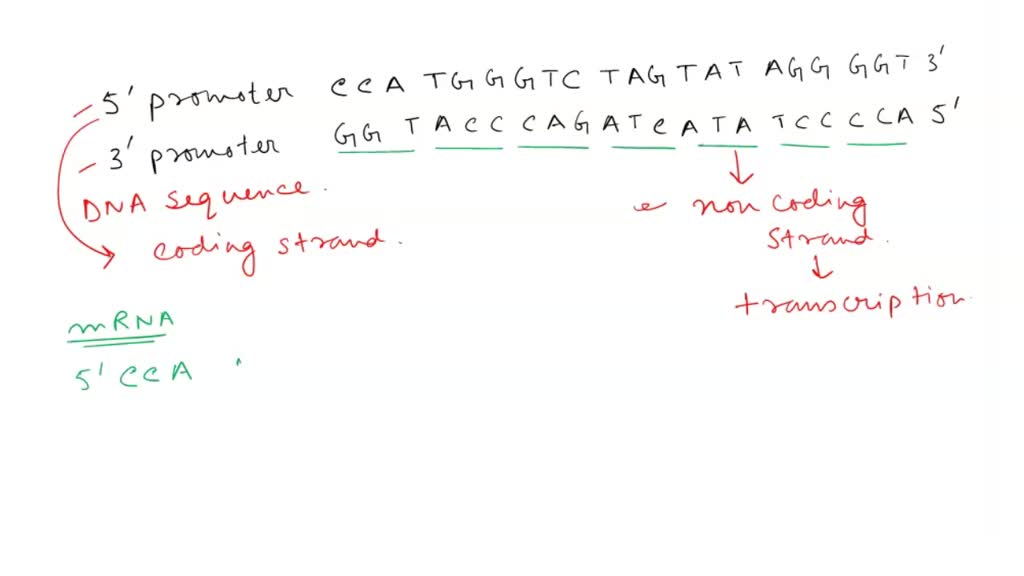 5' promoter CCA TGG GTC TAG TAT AGG GGT 3'
3' promoter GGT ACC CAG ATC ATA TCC CCA 5'
DNA sequence.
coding strand.
non coding
strand.
transcription.
mRNA
5' CCA